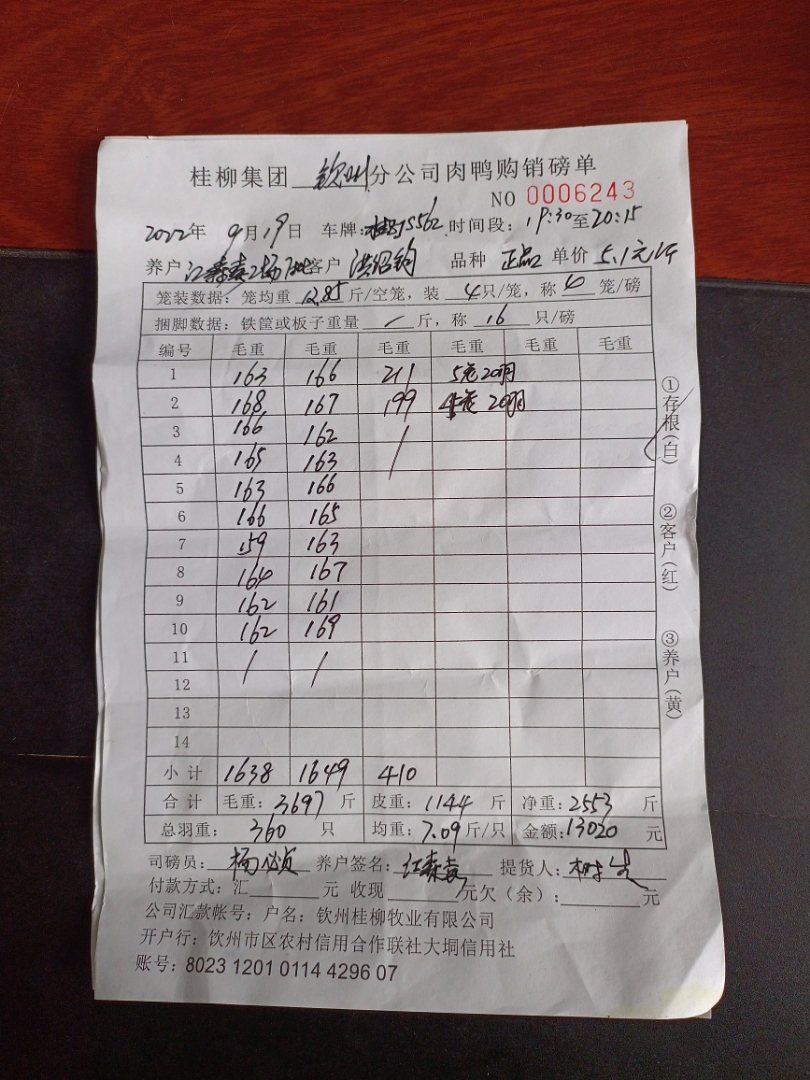 桂柳集团 钦州 分公司肉鸭购销磅单
NO 0006243
2022年 9月19日 车牌: 时间段: 19:30至20:15
养户 江 客户 洪绍钧 品种 正品 单价 5.1元/斤
笼装数据: 笼均重 12.85 斤/空笼, 装 4只/笼, 称 笼/磅
捆脚数据: 铁筐或板子重量 / 斤, 称 16 只/磅
编号 毛重 毛重 毛重 毛重 毛重 毛重
1 163 166 211 5笼20羽
2 168 167 199 4笼20羽
3 166 162 /
4 165 163
5 163 166
6 166 165
7 159 163
8 164 167
9 162 161
10 162 169
11 / /
12
13
14
小计 1638 1649 410
合计 毛重: 3697 斤 皮重: 1144 斤 净重: 2553 斤
总羽重: 360 只 均重: 7.09斤/只 金额: 13020 元
司磅员: 杨 养户签名: 江 提货人:
付款方式: 汇 元 收现 元欠(余): 元
公司汇款帐号: 户名: 钦州桂柳牧业有限公司
开户行: 钦州市区农村信用合作联社大垌信用社
账号: 8023 1201 0114 4296 07
①存根(白)
②客户(红)
③养户(黄)